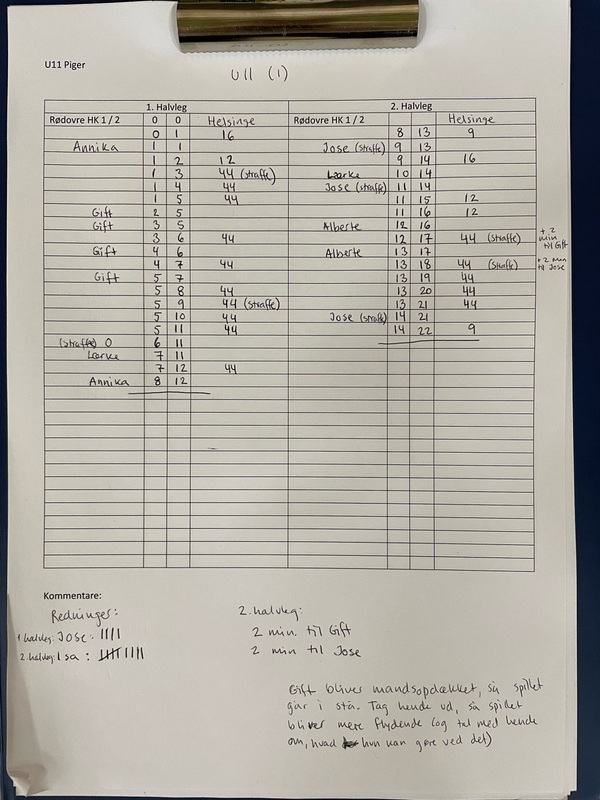 U11 Piger
U11 (1)
1. Halvleg 2. Halvleg
Rødovre HK 1 / 2 0 0 Helsinge Rødovre HK 1 / 2 Helsinge
0 1 16 8 13 9
Annika 1 1 Jose (straffe) 9 13
1 2 12 9 14 16
1 3 44 (straffe) Lærke 10 14
1 4 44 Jose (straffe) 11 14
1 5 44 11 15 12
Gift 2 5 11 16 12
Gift 3 5 Alberte 12 16
3 6 44 12 17 44 (straffe) + 2 min til Gift
Gift 4 6 Alberte 13 17
4 7 44 13 18 44 (straffe) + 2 min til Jose
Gift 5 7 13 19 44
5 8 44 13 20 44
5 9 44 (straffe) 13 21 44
5 10 44 Jose (straffe) 14 21
5 11 44 14 22 9
(straffe) 0 6 11
Lærke 7 11
7 12 44
Annika 8 12
Kommentare:
Redninger:
1 halvleg: Jose: ||||
2. halvleg: Isa: |||| ||||
2. halvleg:
2 min. til Gift
2 min til Jose
Gift bliver mandsopdækket, så spillet
går i stå. Tag hende ud, så spillet
bliver mere flydende (og tal med hende
om, hvad hun kan gøre ved det)